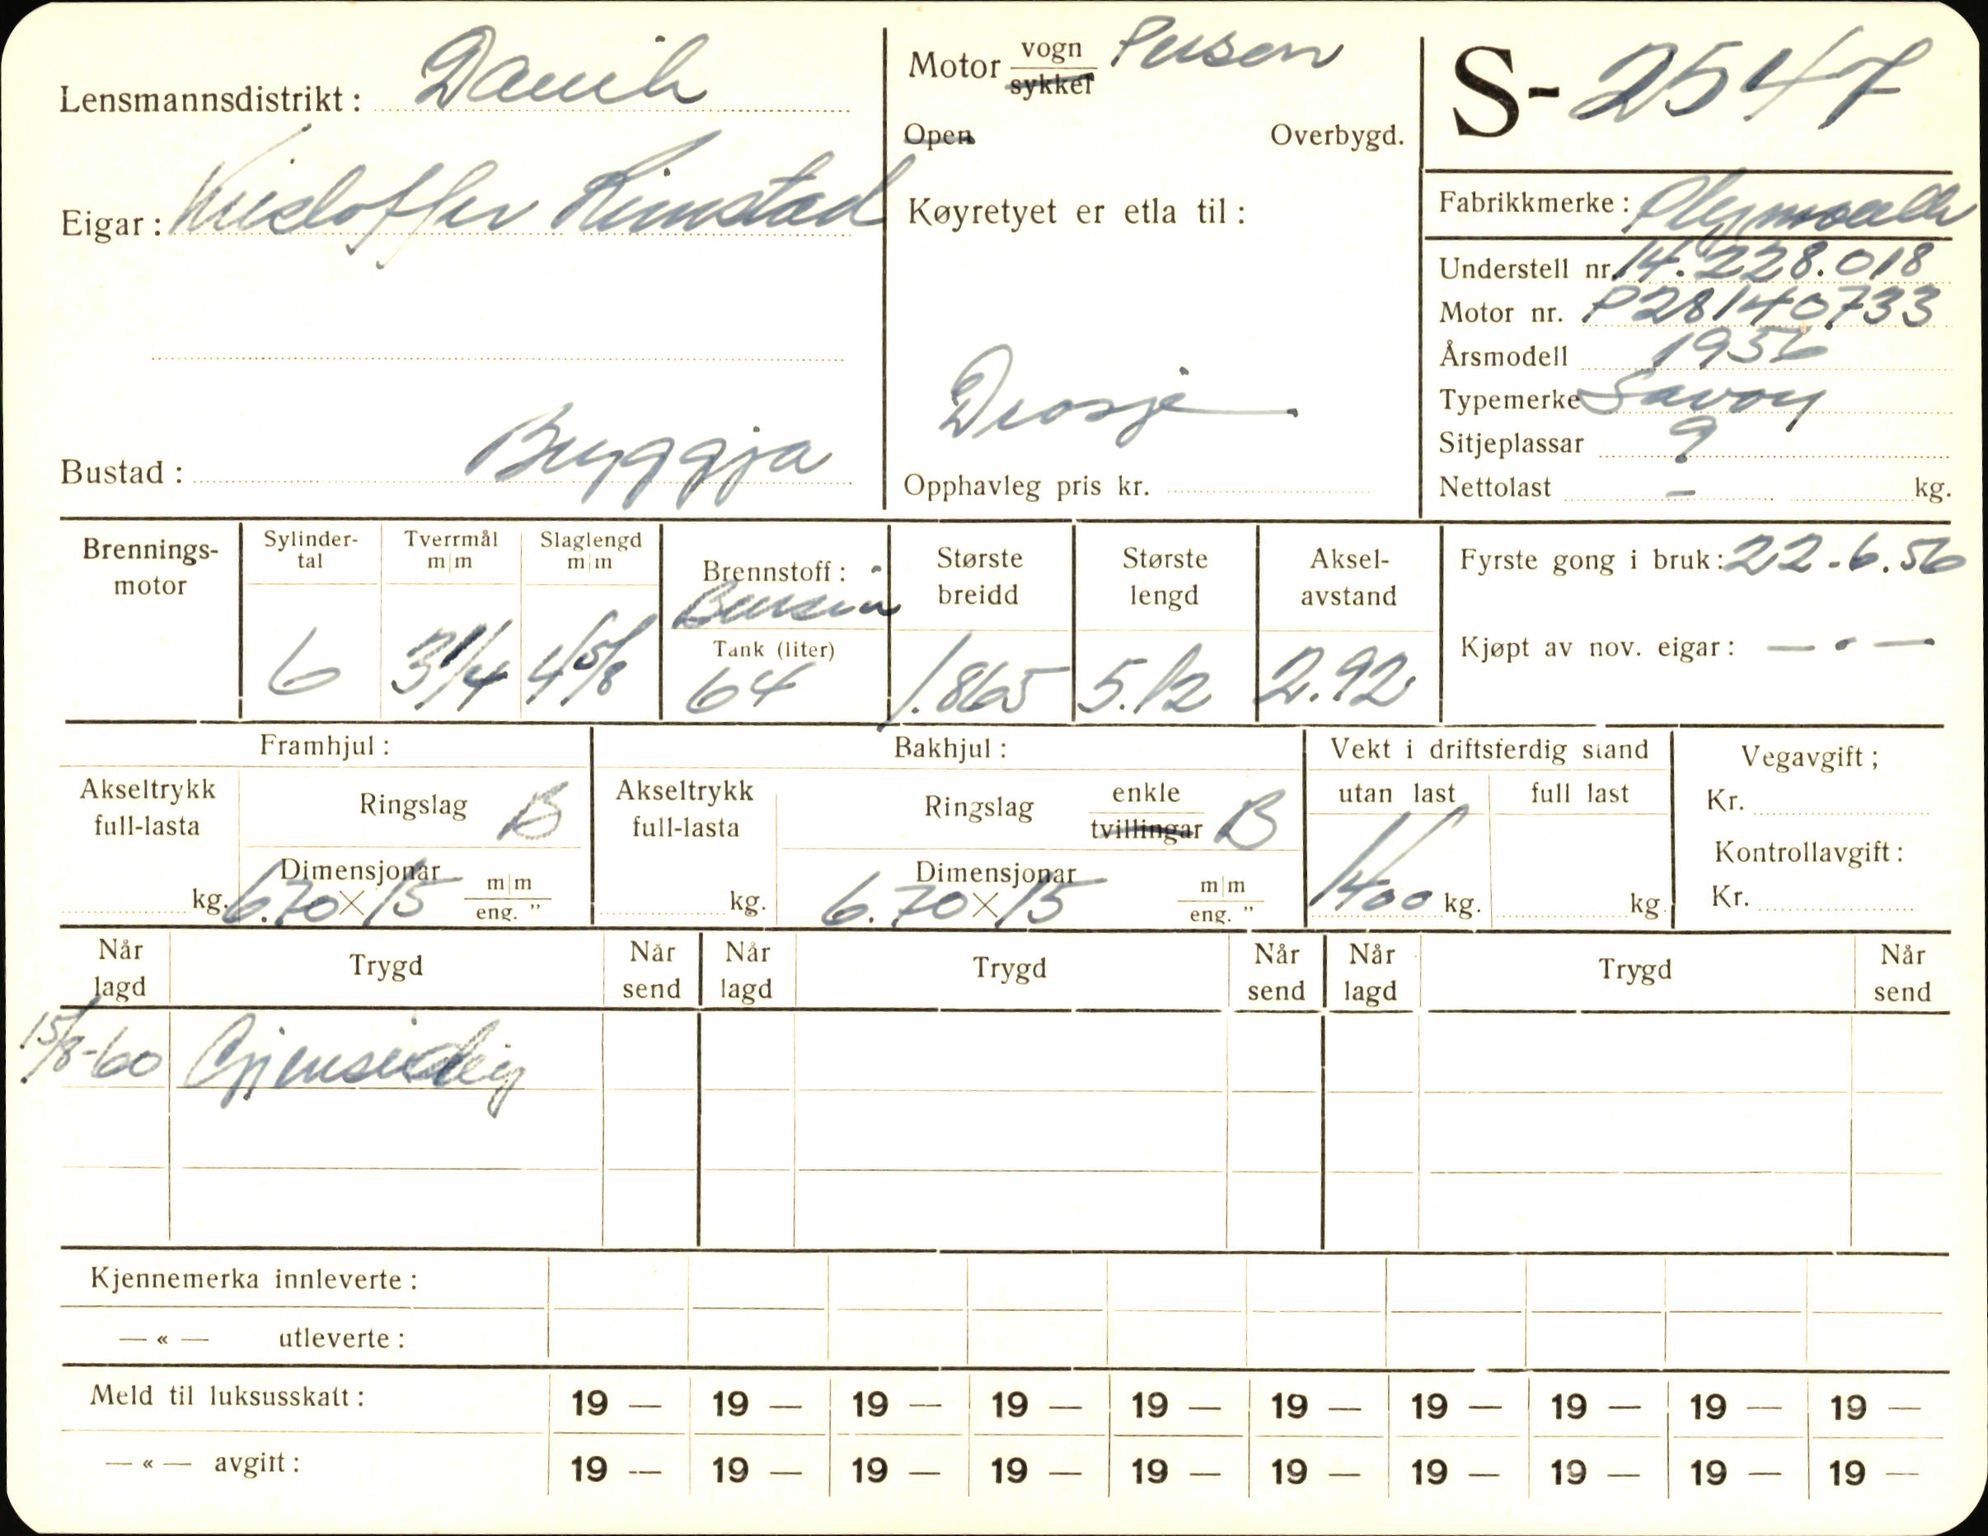 Lensmannsdistrikt: Davik
Eigar: Kristoffer Rimstad
Bustad: Bryggja
Motor vogn Person
sykkel
Open Overbygd.
Køyretyet er etla til:
Drosje
Opphavleg pris kr.
S-2547
Fabrikkmerke: Plymouth
Understell nr. 14.228.018
Motor nr. P28140733
Årsmodell 1956
Typemerke Savoy
Sitjeplassar 9
Nettolast - kg.
Brennings-
motor
Sylinder-
tal
6
Tverrmål
m/m
3 1/4
Slaglengd
m/m
4 5/8
Brennstoff:
Bensin
Tank (liter)
64
Største
breidd
1.865
Største
lengd
5.12
Aksel-
avstand
2.92
Fyrste gong i bruk: 22-6.56
Kjøpt av nov. eigar: — • —
Framhjul:
Akseltrykk
full-lasta
kg.
Ringslag B
Dimensjonar
6.70×15 m/m
eng. "
Bakhjul:
Akseltrykk
full-lasta
kg.
Ringslag enkle
tvillingar B
Dimensjonar
6.70×15 m/m
eng. "
Vekt i driftsferdig stand
utan last full last
1400 kg. kg.
Vegavgift;
Kr.
Kontrollavgift:
Kr.
Når
lagd Trygd Når
send Når
lagd Trygd Når
send Når
lagd Trygd Når
send
15/8-60 Gjensidig
Kjennemerka innleverte:
— « — utleverte:
Meld til luksusskatt: 19 — 19 — 19 — 19 — 19 — 19 — 19 — 19 — 19 — 19 —
— « — avgift: 19 — 19 — 19 — 19 — 19 — 19 — 19 — 19 — 19 — 19 —